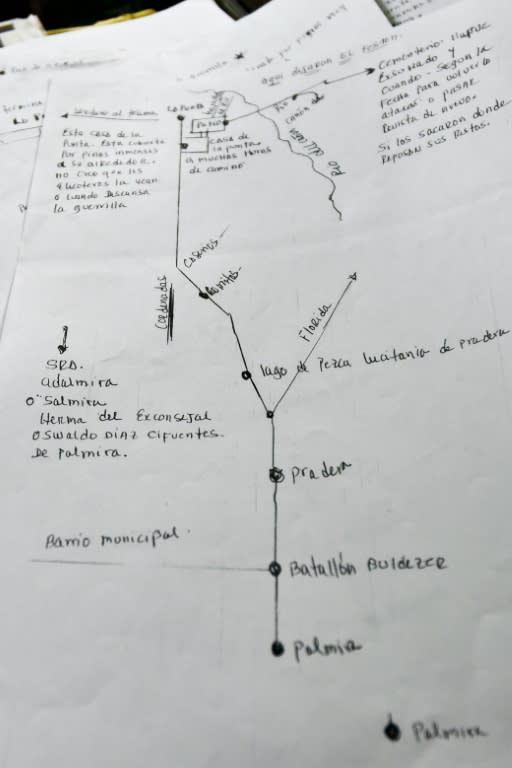 Aqui dejaron el
Cementerio
Excavado y
Cuando - Según la
Fecha para volver a
atacar o pasar
revista de nuevo.
Si los sacaron donde
Reposan sus Restos.
Rio
La Punta
Patio
casa de
la punta
a muchas Horas
de camino
Esta casa de la
Punta. Esta cubierta
Por pinos inmensos
a su alrededor.
no creo que los
la vean
o cuando Descansa
la guerrilla
Coordenadas
Florida
lago de Pezca lucitania de pradera
SRA.
adalmira
o "Salmira
Herma del Exconsejal
Oswaldo DIAZ Cifuentes.
De Palmira.
Pradera
Barrio municipal
Batallón BULDEZER
Palmira
Palmira